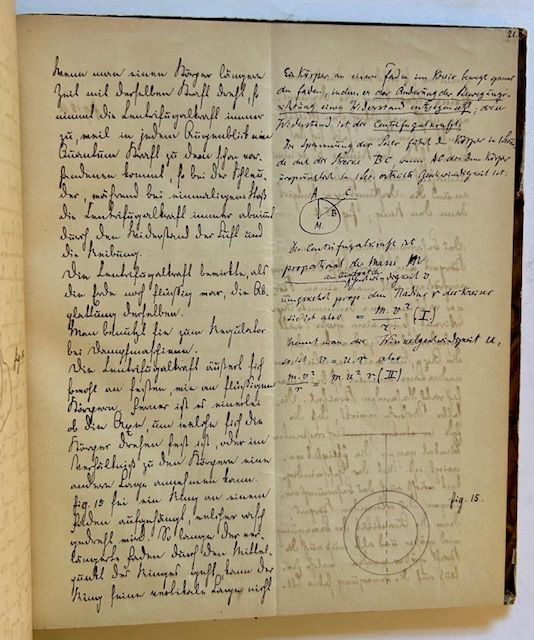 Wenn man einen Körper längere
Zeit mit derselben Kraft dreht, so
nimmt die Centrifugalkraft immer
zu, weil in jedem Augenblick ein
Quantum Kraft zu dem schon vor-
handenen kommt, so bei der Schleu-
der, während bei einmaligem Stoß
die Centrifugalkraft immer abnimmt
durch den Widerstand der Luft und
die Reibung.
Die Centrifugalkraft bewirkte, als
die Erde noch flüssig war, die Ab-
plattung derselben.
Man benutzt sie zum Regulator
bei Dampfmaschinen.
Die Centrifugalkraft äußert sich
sowohl an festen, wie an flüssigen
Körpern. Ferner ist es einerlei
ob die Axe, um welche sich die
Körper drehen fest ist, oder im
Verhältniß zu den Körpern eine
andere Lage annehmen kann.
fig. 15 sei ein Ring an einem
Faden aufgehängt, welcher rasch
gedreht wird. So lange der ver-
längerte Faden durch den Mittel-
punkt des Ringes geht, kann der
Ring seine vertikale Lage nicht
21.
Ein Körper an einem Faden im Kreis bewegt spannt
den Faden, indem er der Änderung der Bewegungs-
richtung einen Widerstand entgegensetzt, dieser
Widerstand ist die Centrifugalkraft.
Die Spannung der Seiles führt den Körper in 1 Secun-
de auf der Strecke BC, wenn AC die dem Körper
ursprünglich in 1 Sec. ertheilte Geschwindigkeit ist.
A C
B
M.
Die Centrifugalkraft ist
proportional der Masse M
Geschwindigkeit v
umgekehrt prop. dem Radius r des Kreises
sie ist also = m.v²/r (I.)
Nennt man die Winkelgeschwindigkeit u,
so ist v = u.r also
m.v²/r = m u² r (II)
fig. 15.